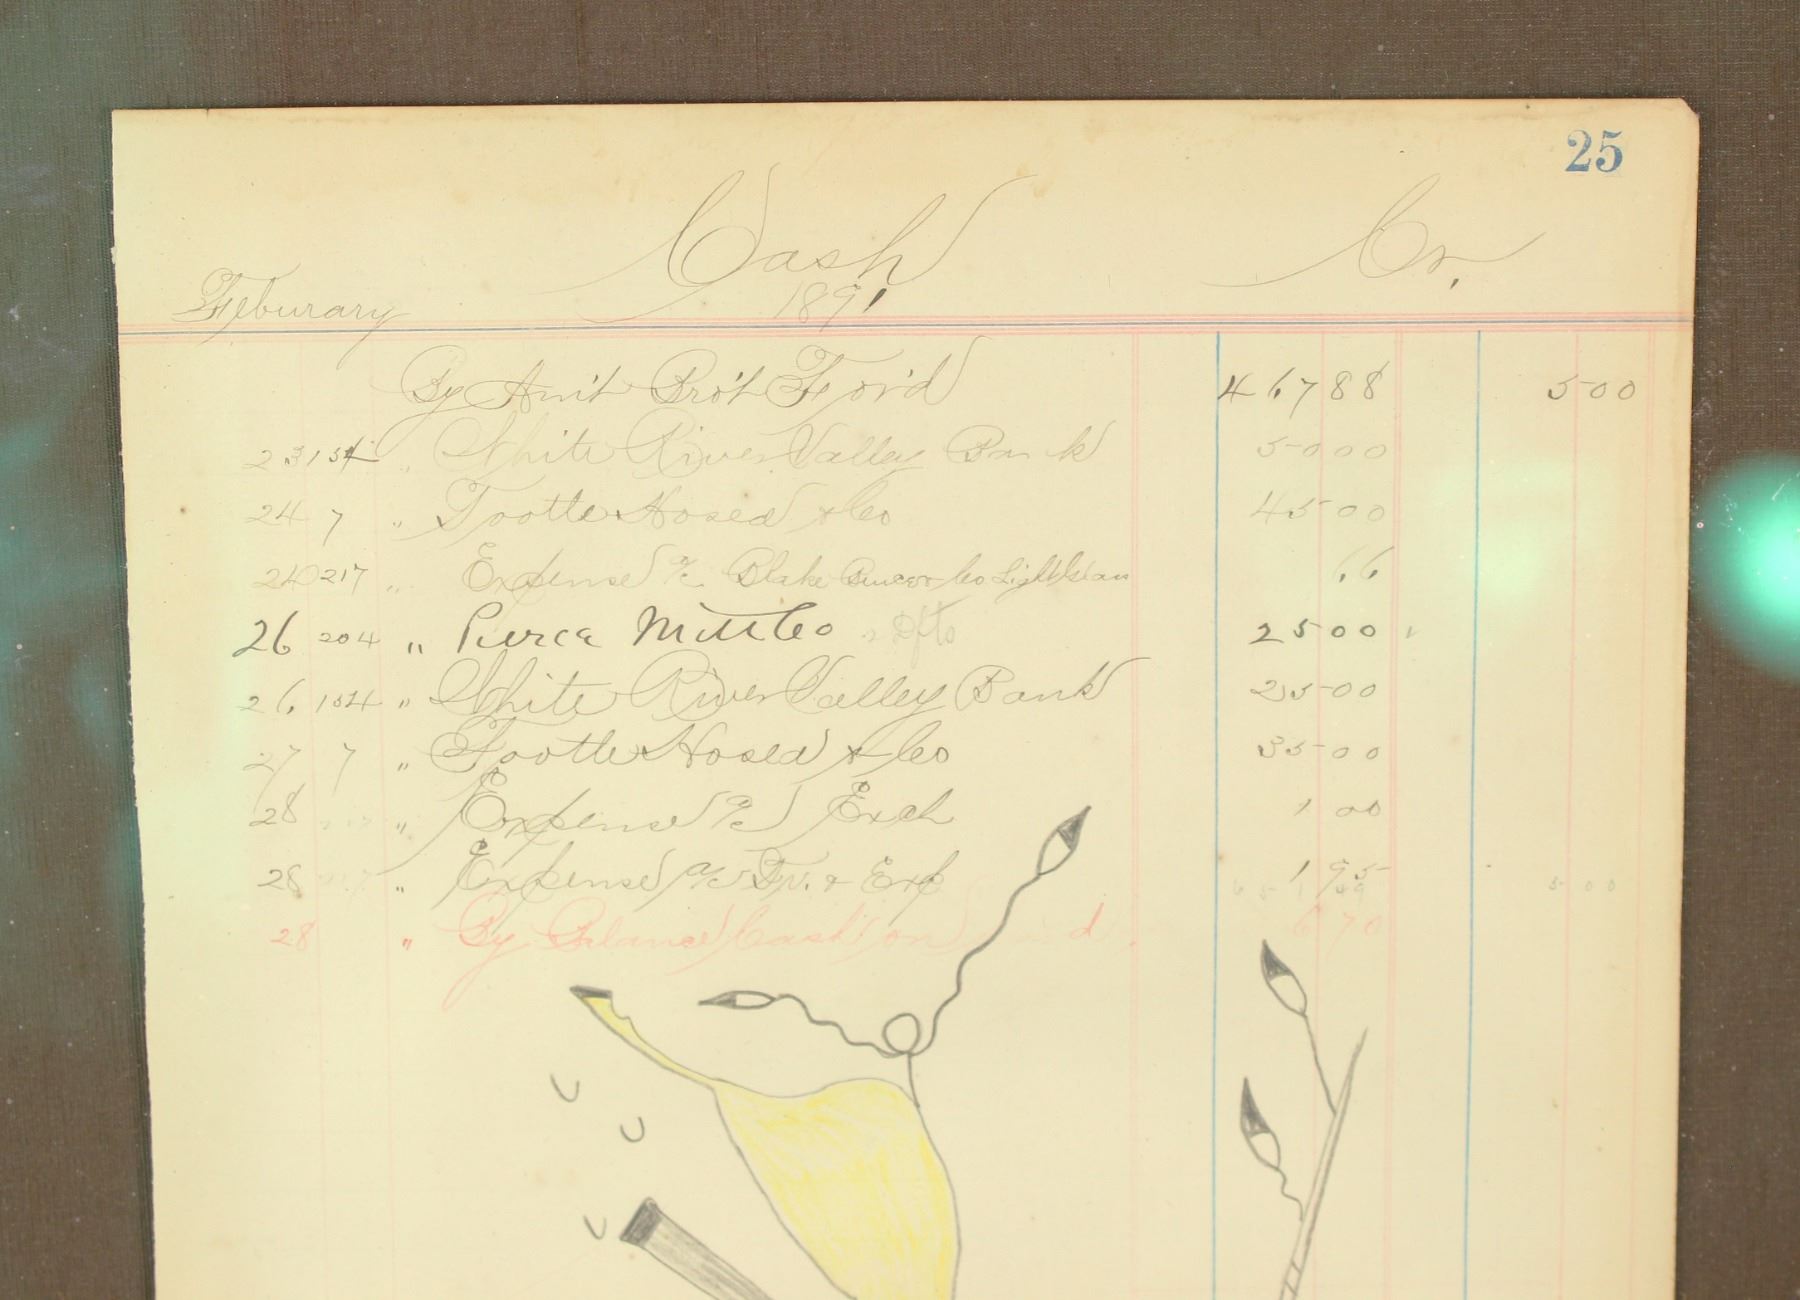 25
Cash Cr.
Feburary 1891
By Am't Bro't For'd 467 88 5 00
23 154 " White River Valley Bank 50 00
24 7 " Tootle Hosea & Co 45 00
217 " Expense a/c Blake & Co Light 66
26 204 " Pierce Co Dfts 25 00
26 154 " White River Valley Bank 25 00
27 7 " Tootle Hosea & Co 35 00
28 " Expense a/c Exch 1 00
28 " Expense a/c Tr. & Exp 1 95
5 00
28 " By Balance Cash on 6 70